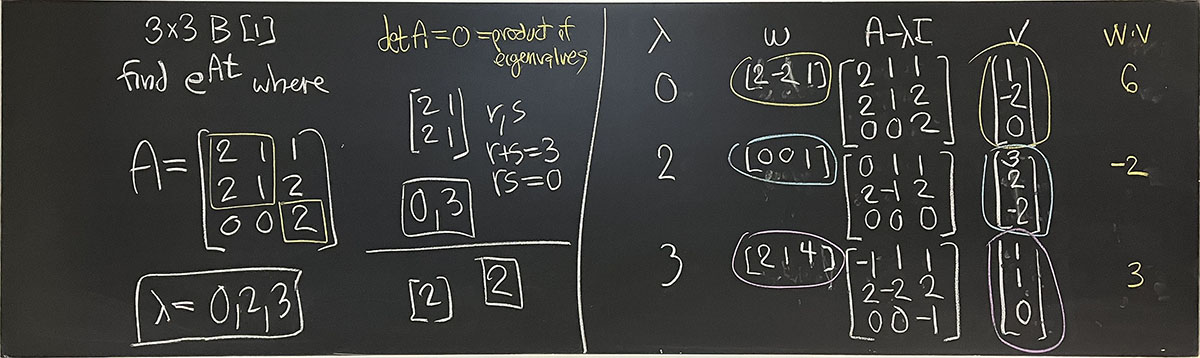 3x3 B [1]
find e^At where
A = [2 1 1
2 1 2
0 0 2]
λ = 0,2,3
det A = 0 = product of
eigenvalues
[2 1
2 1]
r, s
r+s=3
rs=0
0,3
[2] 2
λ w A-λI v w·v
0 [2 -2 1] [2 1 1
2 1 2
0 0 2] [1
-2
0] 6
2 [0 0 1] [0 1 1
2 -1 2
0 0 0] [3
2
-2] -2
3 [2 1 4] [-1 1 1
2 -2 2
0 0 -1] [1
1
0] 3